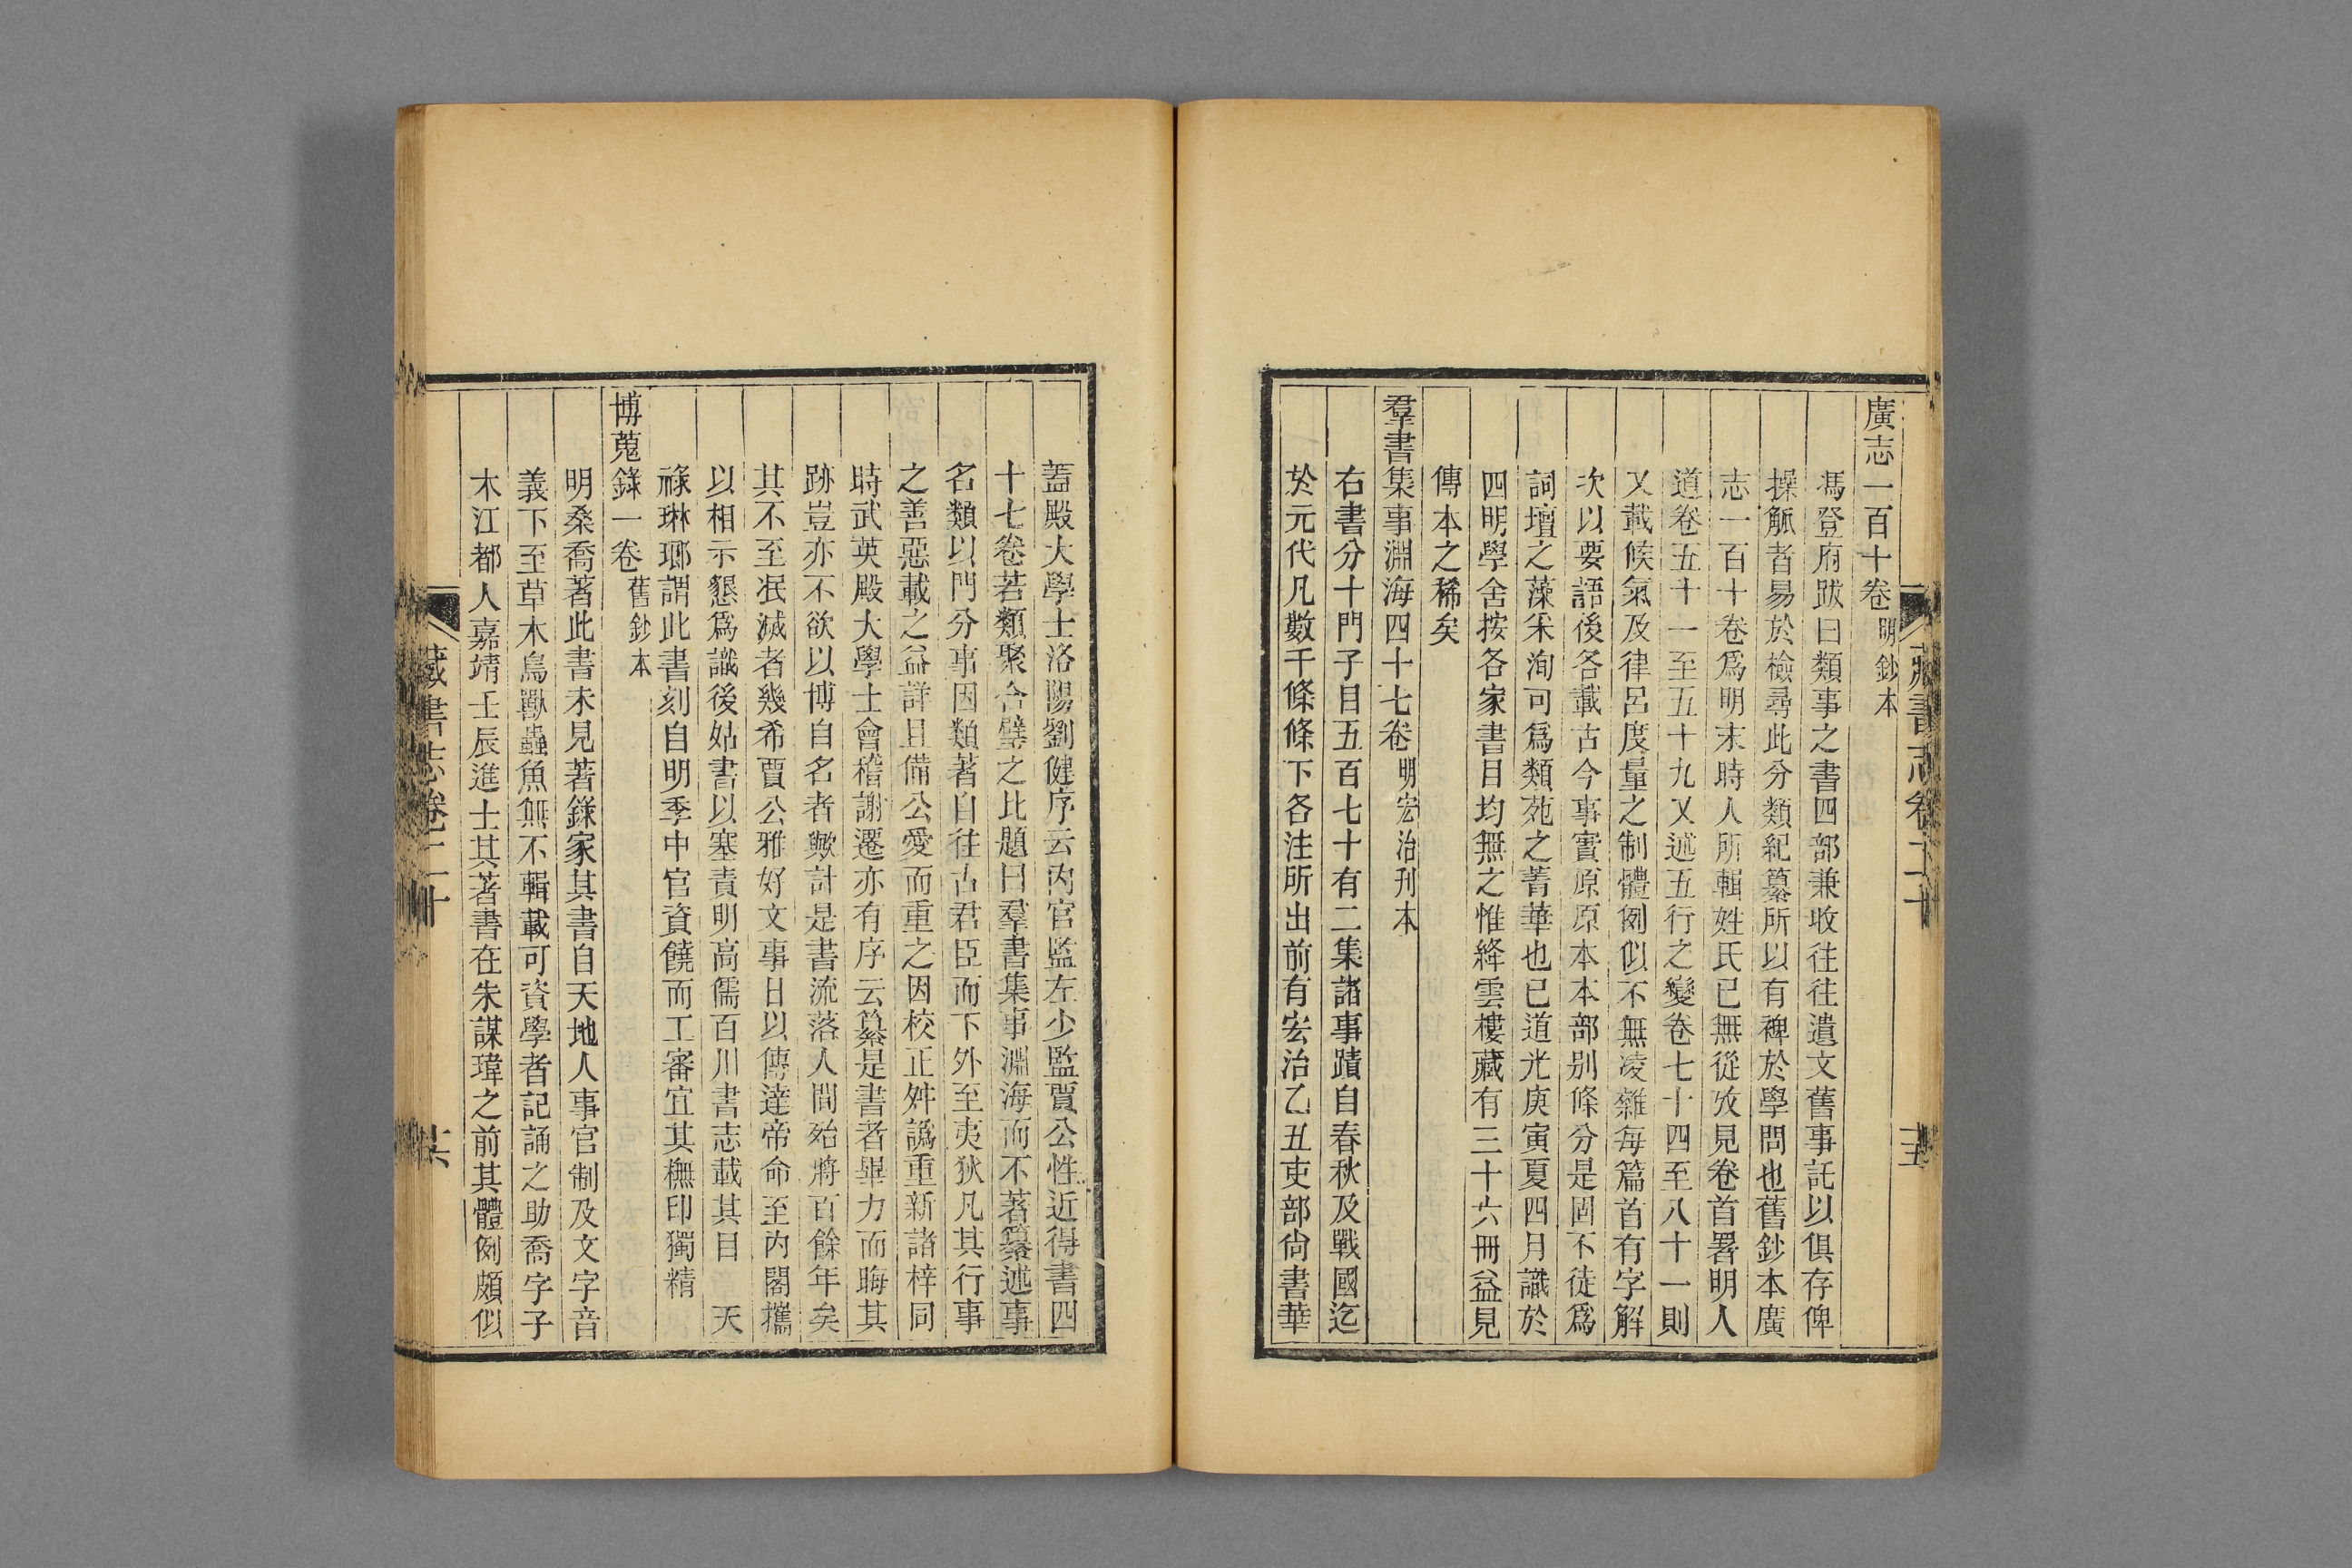 廣志一百十卷明鈔本
馮登府跋曰類事之書四部兼收往往遺文舊事託以俱存俾
操觚者易於檢尋此分類紀纂所以有裨於學問也舊鈔本廣
志一百十卷爲明末時人所輯姓氏已無從攷見卷首署明人
道卷五十一至五十九又述五行之變卷七十四至八十一則
又載候氣及律呂度量之制體例似不無凌雜每篇首有字解
次以要語後各載古今事實原原本本部别條分是固不徒爲
詞壇之藻采洵可爲類苑之菁華也已道光庚寅夏四月識於
四明學舍按各家書目均無之惟絳雲樓藏有三十六冊益見
傳本之稀矣
羣書集事淵海四十七卷明宏治刊本
右書分十門子目五百七十有二集諸事蹟自春秋及戰國迄
於元代凡數千條條下各注所出前有宏治乙丑吏部尙書華
藏書志卷二十
蓋殿大學士洛陽劉健序云內官監左少監賈公性近得書四
十七卷若類聚合璧之比題曰羣書集事淵海而不著纂述事
名類以門分事因類著自往古君臣而下外至夷狄凡其行事
之善惡載之益詳且備公愛而重之因校正舛譌重新諸梓同
時武英殿大學士會稽謝遷亦有序云纂是書者畢力而晦其
跡豈亦不欲以博自名者歟計是書流落人間殆將百餘年矣
其不至泯滅者幾希賈公雅好文事日以傳達帝命至內閣攜
以相示懇爲識後姑書以塞責明高儒百川書志載其目　天
祿琳瑯謂此書刻自明季中官資饒而工審宜其橅印獨精
博蒐錄一卷舊鈔本
明桑喬著此書未見著錄家其書自天地人事官制及文字音
義下至草木鳥獸蟲魚無不輯載可資學者記誦之助喬字子
木江都人嘉靖壬辰進士其著書在朱謀㙔之前其體例頗似
藏書志卷二十